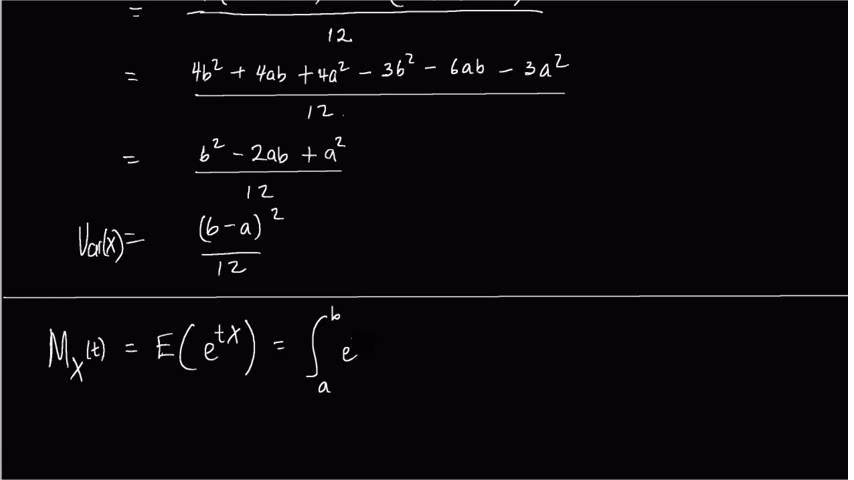 =
12
= 4b² + 4ab + 4a² - 3b² - 6ab - 3a²
12
= b² - 2ab + a²
12
Var(x) = (b-a)²
12
M_X(t) = E(e^{tX}) = ∫_a^b e